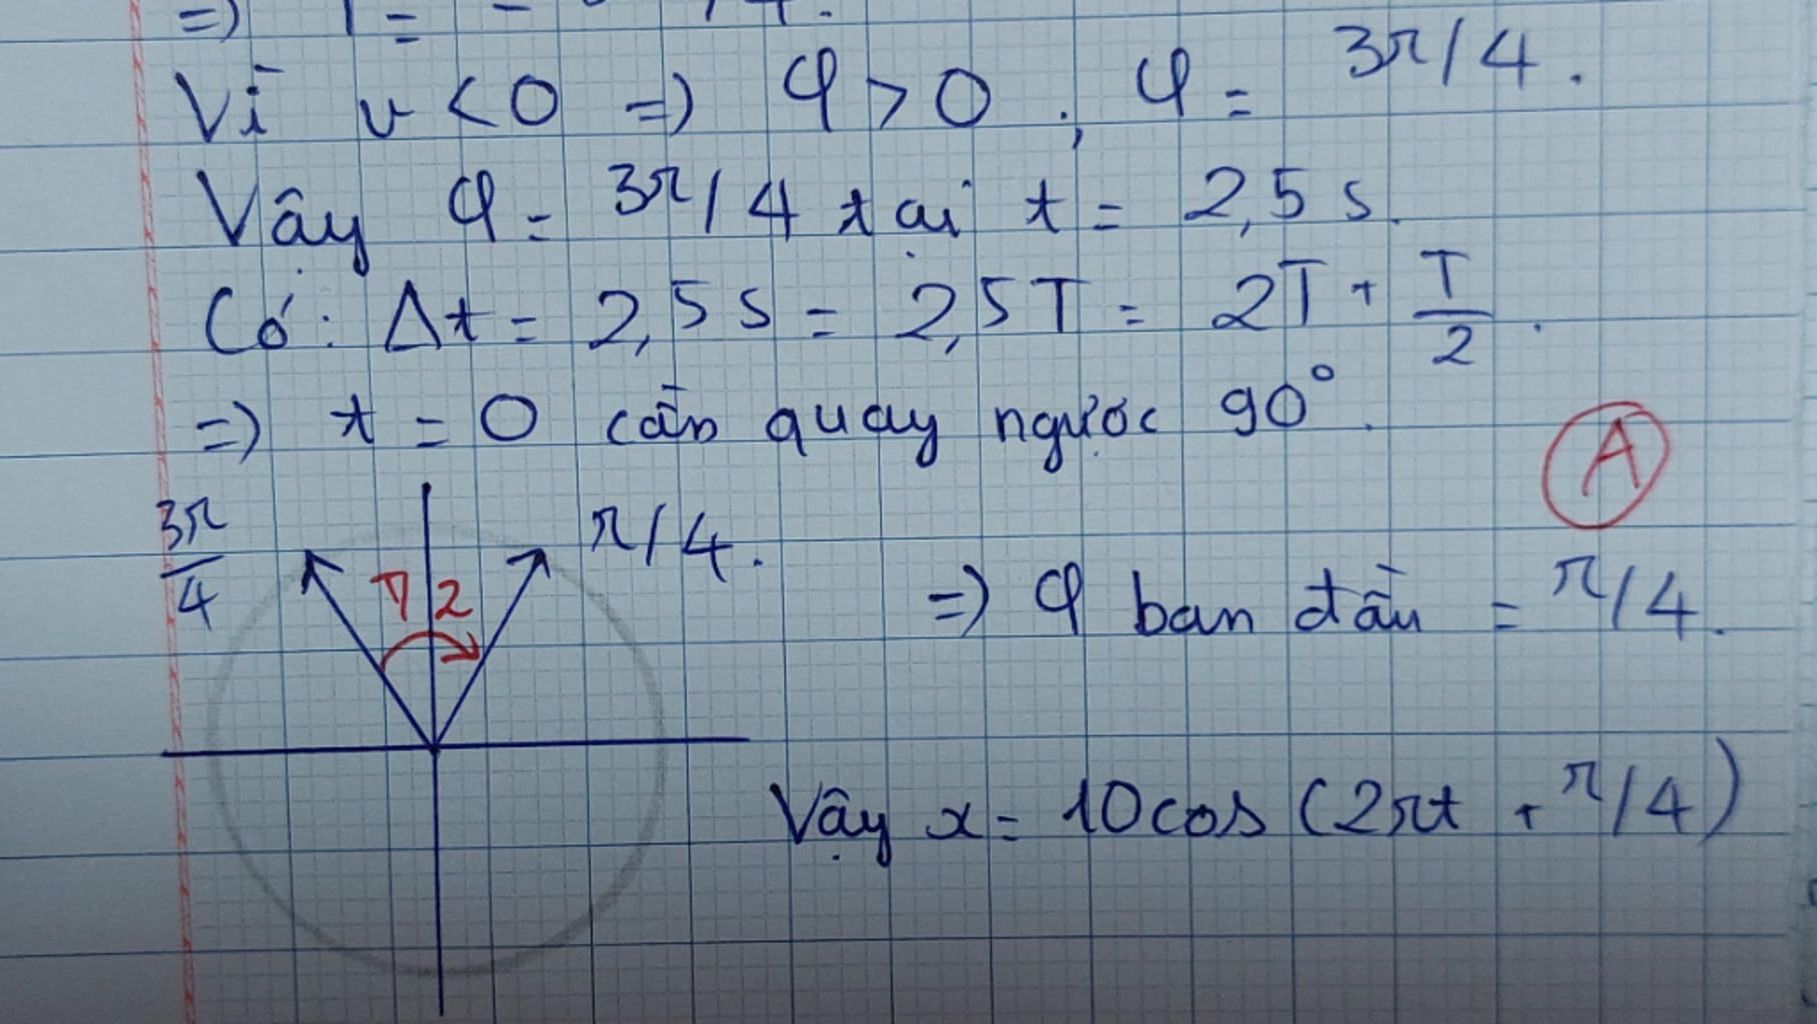 Vì v < 0 => φ > 0 ; φ = 3π/4.
Vậy φ = 3π/4 tại t = 2,5 s.
Có: Δt = 2,5 s = 2,5T = 2T + T/2.
=> t = 0 cần quay ngược 90°.
A
3π/4
π/2
π/4.
=> φ ban đầu = π/4.
Vậy x = 10cos (2πt + π/4)